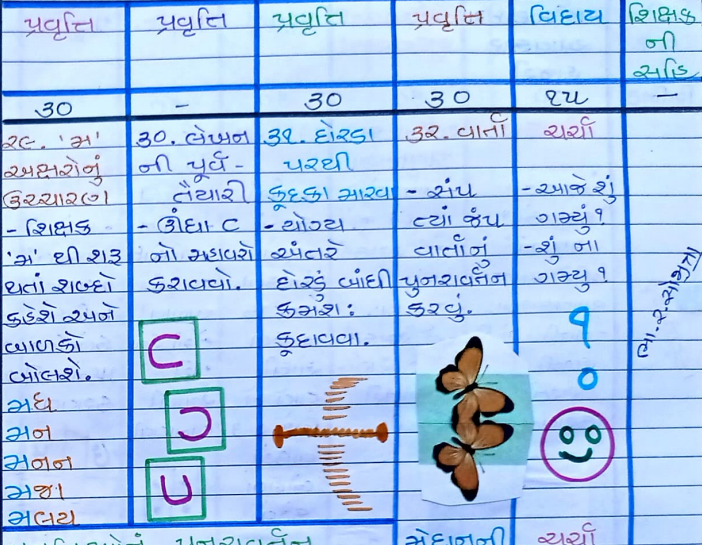 પ્રવૃત્તિ
પ્રવૃત્તિ
પ્રવૃત્તિ
પ્રવૃત્તિ
વિદાય
શિક્ષક
ની
સહિ
30
-
30
30
૧૫
-
૨૯. 'મ'
અક્ષરોનું
ઉચ્ચારણ
- શિક્ષક
'મ' થી શરૂ
થતાં શબ્દો
કહેશે અને
બાળકો
બોલશે.
મધ
મન
મનન
મજા
મલય
30. લેખન
ની પૂર્વ-
તૈયારી
- ઊંધા C
નો મહાવરો
કરાવવો.
C
U
૩૧. દોરડા
પરથી
કૂદકા મારવા
- યોગ્ય
અંતરે
દોરડું બાંધી
ક્રમશઃ
કૂદાવવા.
૩૨. વાર્તા
- સંપ
ત્યાં જંપ
વાર્તાનું
પુનરાવર્તન
કરવું.
ચર્ચા
- આજે શું
ગમ્યું?
- શું ના
ગમ્યુ?
?
પુનરાવર્તન
મેદાનની
ચર્ચા